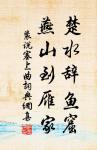 楚水辞鱼窟
燕山到雁家
裴说塞上曲词典网集